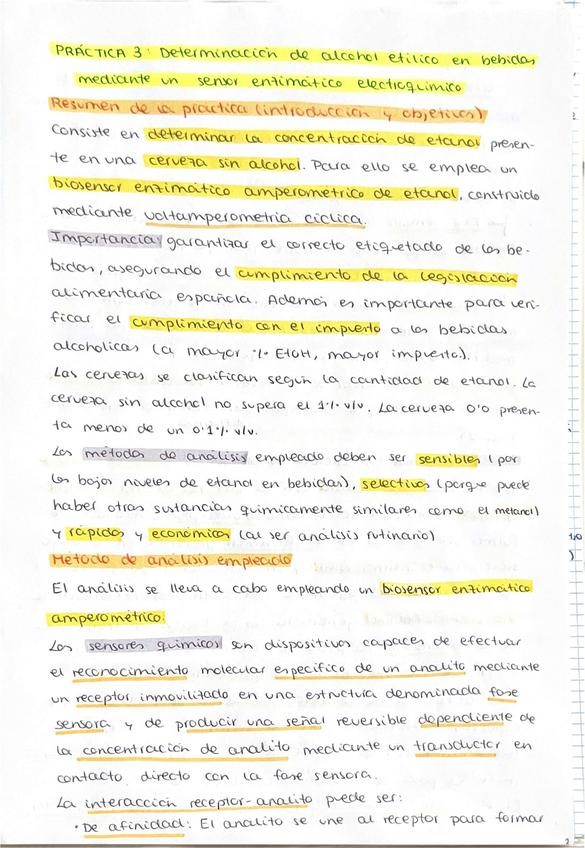 PRÁCTICA 3: Determinación de alcohol etílico en bebidas
mediante un sensor enzimático electroquímico
Resumen de la práctica (introducción y objetivos)
Consiste en determinar la concentración de etanol presen-
te en una cerveza sin alcohol. Para ello se emplea un
biosensor enzimático amperométrico de etanol, construido
mediante voltamperometría cíclica.
Importancia: garantizar el correcto etiquetado de las be-
bidas, asegurando el cumplimiento de la legislación
alimentaria española. Además es importante para veri-
ficar el cumplimiento con el impuesto a las bebidas
alcohólicas (a mayor % EtOH, mayor impuesto).
Las cervezas se clasifican según la cantidad de etanol. La
cerveza sin alcohol no supera el 1% v/v. La cerveza 0'0 presen-
ta menos de un 0'1% v/v.
Los métodos de análisis empleado deben ser sensibles (por
los bajos niveles de etanol en bebidas), selectivos (porque puede
haber otras sustancias químicamente similares como el metanol)
y rápidos y económicos (al ser análisis rutinario)
Método de análisis empleado
El análisis se lleva a cabo empleando un biosensor enzimático
amperométrico.
Los sensores químicos son dispositivos capaces de efectuar
el reconocimiento molecular específico de un analito mediante
un receptor inmovilizado en una estructura denominada fase
sensora y de producir una señal reversible dependiente de
la concentración de analito mediante un transductor en
contacto directo con la fase sensora.
La interacción receptor-analito puede ser:
· De afinidad: El analito se une al receptor para formar
2